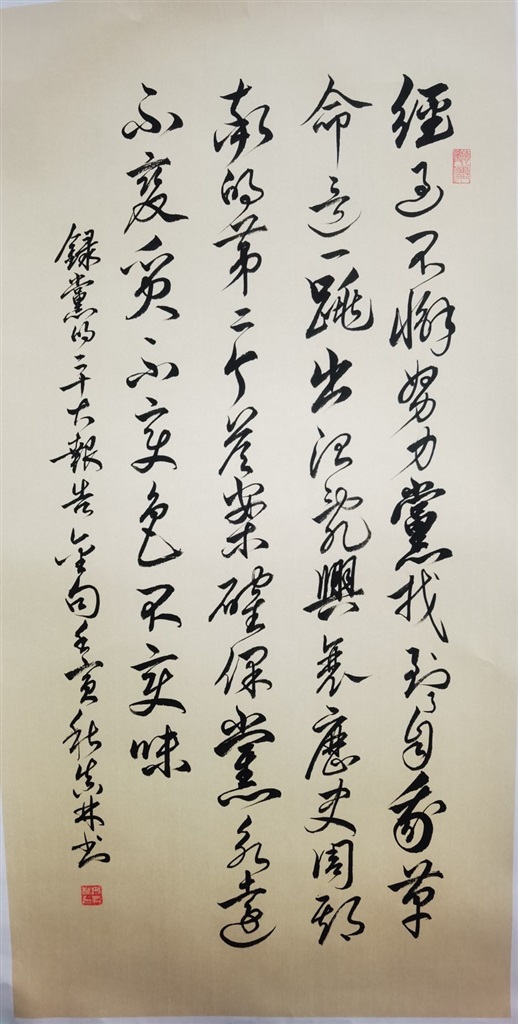 經過不懈努力黨找到了自我革
命這一跳出治亂興衰歷史周期
率的第二个答案確保黨永遠
不变质不变色不变味
錄黨的二十大報告金句壬寅秋林书